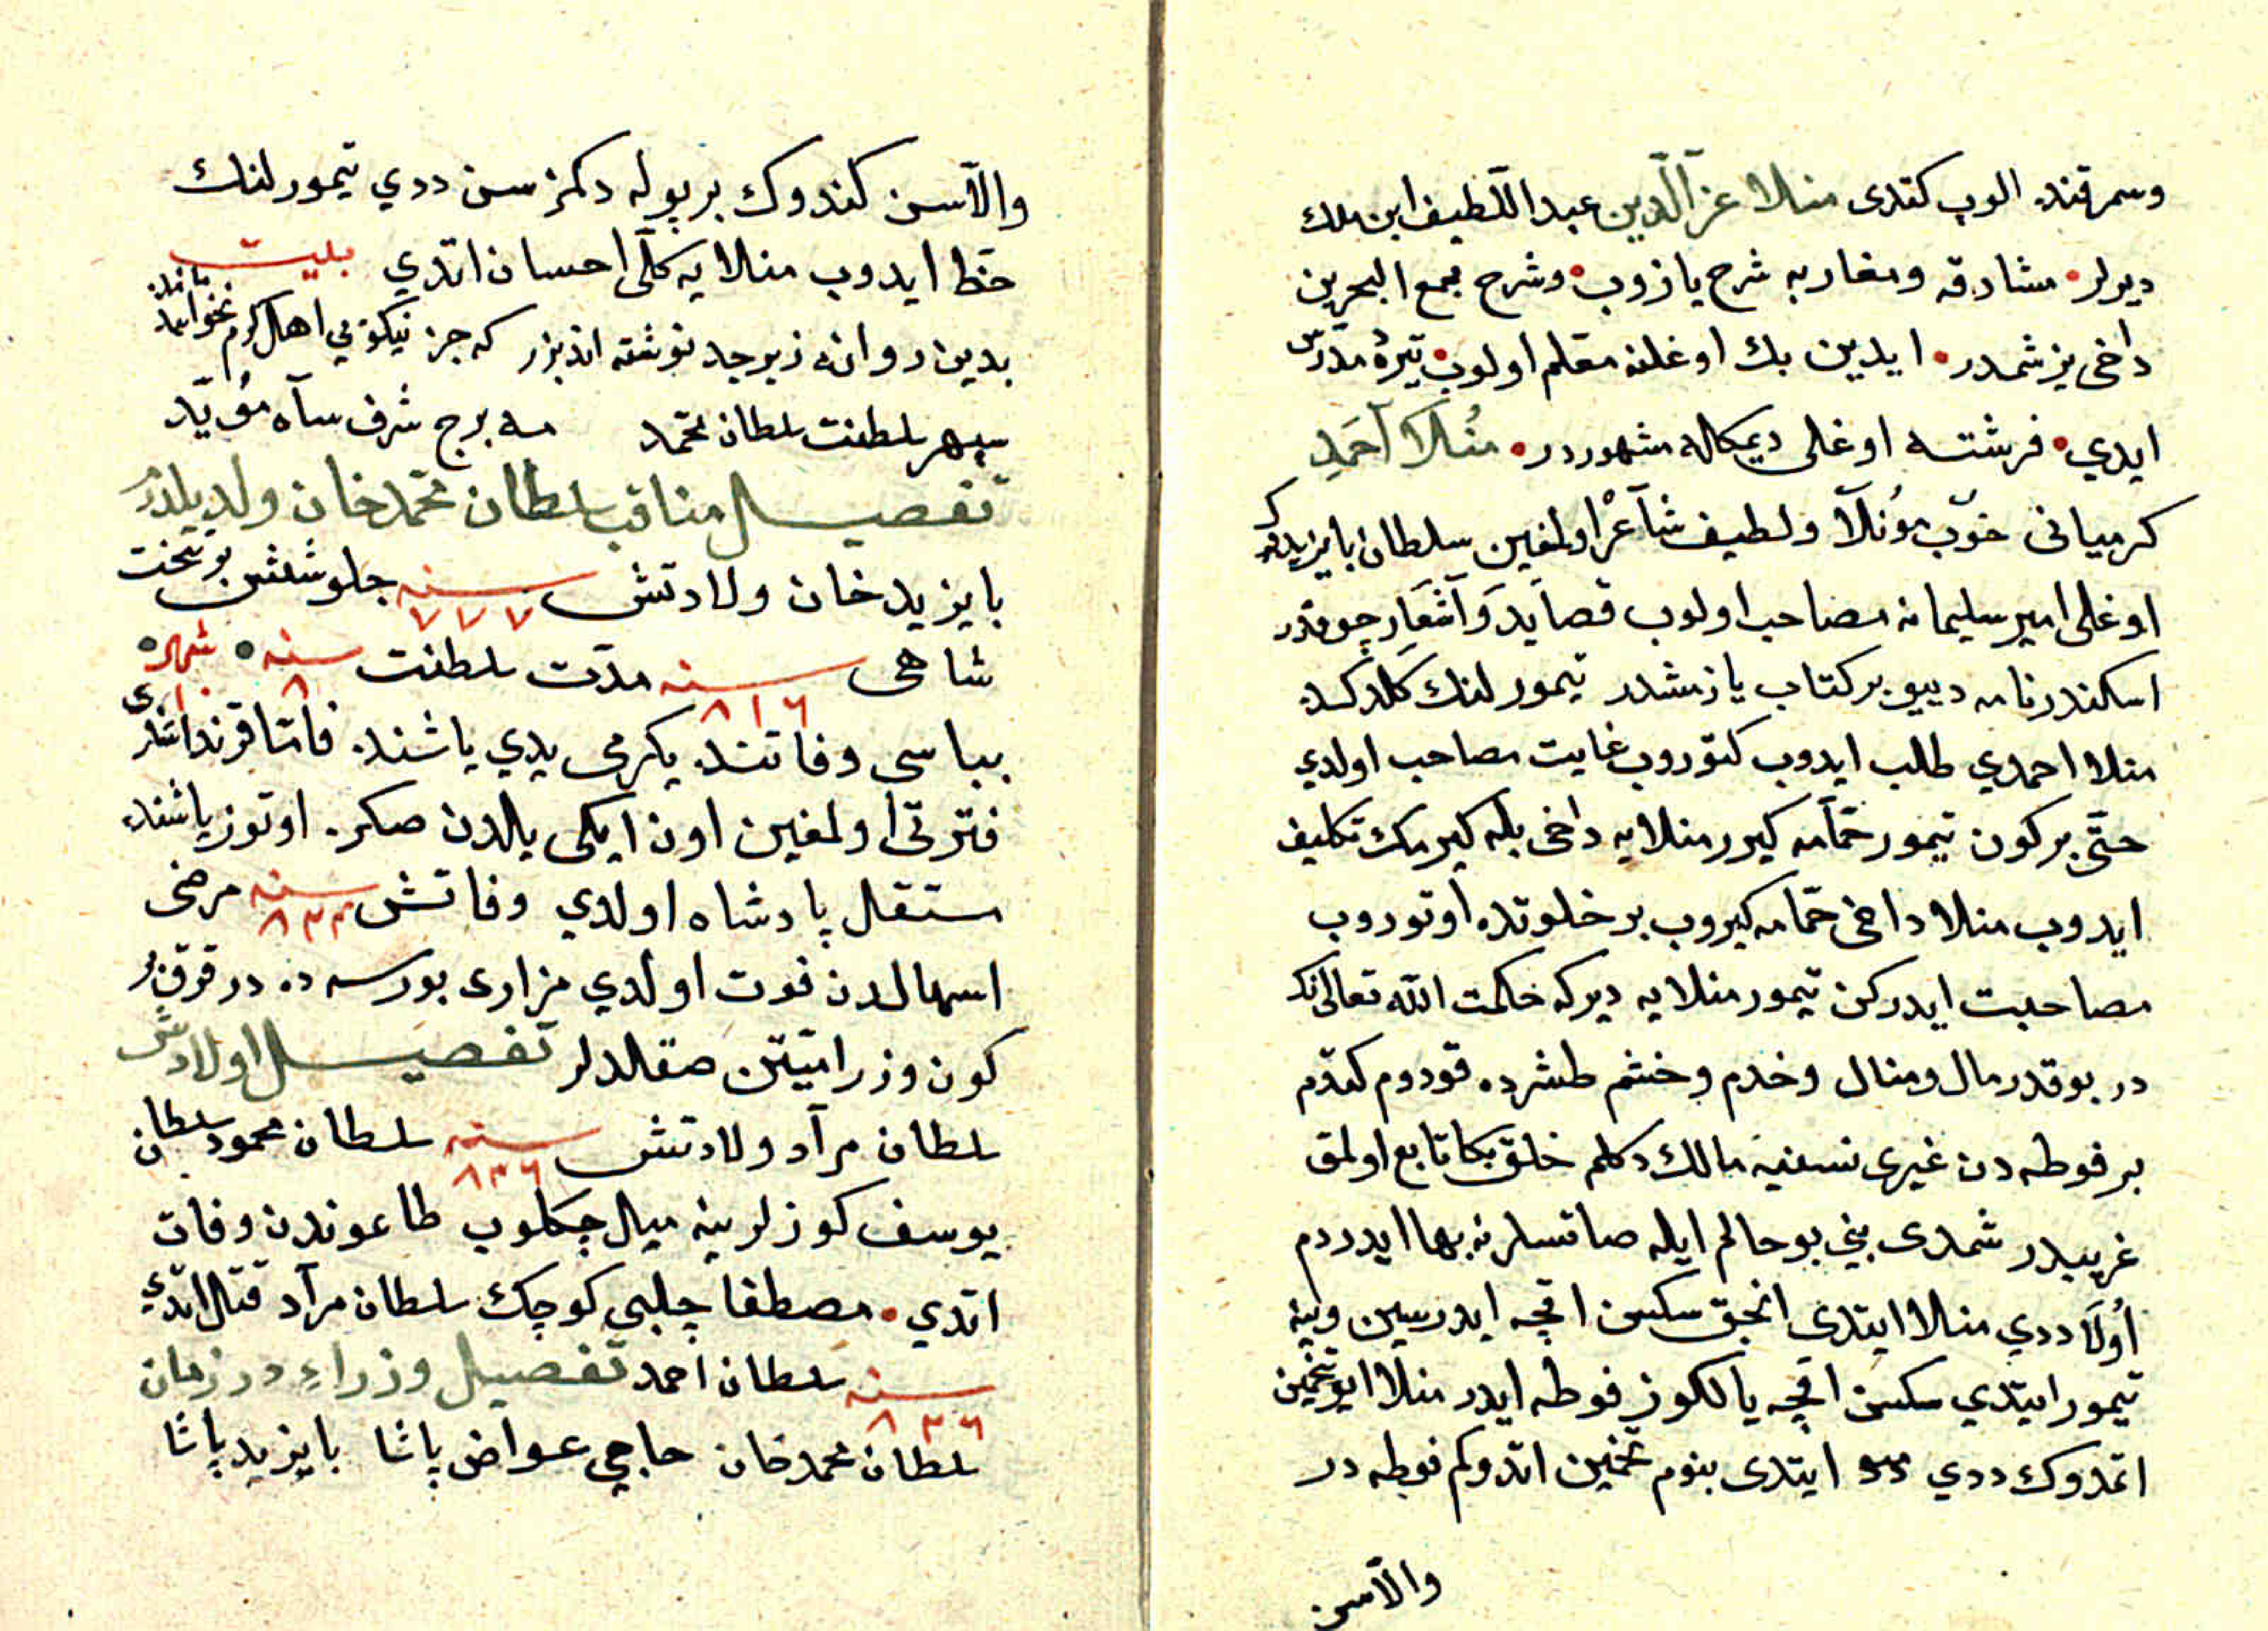 وسمرقنده الوب كتدى منلا عزّ الدّين عبد اللّطيف ابن ملك
ديرلر • مشارقه ومغاربه شرح يازوب • وشرح مجمع البحرين
داخى يزشمدر • ايدين بك اوغلنه معلم اولوب • تيره ده مدرّس
ايدي • فرشته اوغلى ديمكله مشهوردر • منلا احمد
كرميانى خوب مونلا ولطيف شاعر اولمغين سلطان بايزيدك
اوغلى امير سليمانه مصاحب اولوب قصايد واشعار چوقدر
اسكندرنامه دييو بر كتاب يازمشدر تيمور لنك كلدكده
منلا احمدي طلب ايدوب كتوروب غايت مصاحب اولدي
حتّى بر كون تيمور حمّامه كيرر منلايه داخى بله كيرمك تكليف
ايدوب منلا داخى حمّامه كيروب بر خلوتده اوتوروب
مصاحبت ايدركن تيمور منلايه ديركه حكمت اللّه تعالى نك
در بوقدر مال ومنال وخدم وحشم طشرده قودوم كندم
بر فوطه دن غيرى نسنيه مالك دكلم خلق بكا تابع اولمق
غريبدر شمدى بني بو حالم ايله صاتسلر نه بها ايدردم
أولا ددي منلا ايتدى انجق سكسن اقچه ايدرسين وينه
تيمور ايتدي سكسن اقچه يالكوز فوطه ايدر منلا ايو تخمين
اتمدوك ددي ايتدى بنوم تخمين اتدوكم فوطه در
والاسن
والاسن كندوك بر پوله دكمز سن ددي تيمور لنك
حظ ايدوب منلايه كلّى احسان اتدي بيت
بدين رواق زبرجد نوشته اند بزر كه جز نيكوئي اهل كرم نخواهد ماند
سپهر سلطنت سلطان محمّد مه برج شرف شاه مؤيّد
تفصيل مناقب سلطان محمّد خان ولد يلدرم
بايزيد خان ولادتش سنه ٧٧٧ جلوسش بر تخت
شاهى سنه ٨١٦ مدّت سلطنت سنه ٨ شهر ١٠
بباسى وفاتنده يكرمى يدي ياشنده فامّا قرنداشلرى
فترتى اولمغين اون ايكى يلدن صكره اوتوز ياشنده
مستقل پادشاه اولدي وفاتش سنه ٨٢٤ مرضى
اسهالدن فوت اولدي مزارى بورسه ده در قرق بر
كون وزرا ميّتن صقلدلر تفصيل اولادش
سلطان مراد ولادتش سنه ٨٣٦ سلطان محمود سلطان
يوسف كوزلرينه ميل چكلوب طاعوندن وفات
اتدي • مصطفا چلبى كوچك سلطان مراد قتل اتدي
سنه ٨٢٦ سلطان احمد تفصيل وزراء در زمان
سلطان محمد خان حاجي عواض پاشا بايزيد پاشا